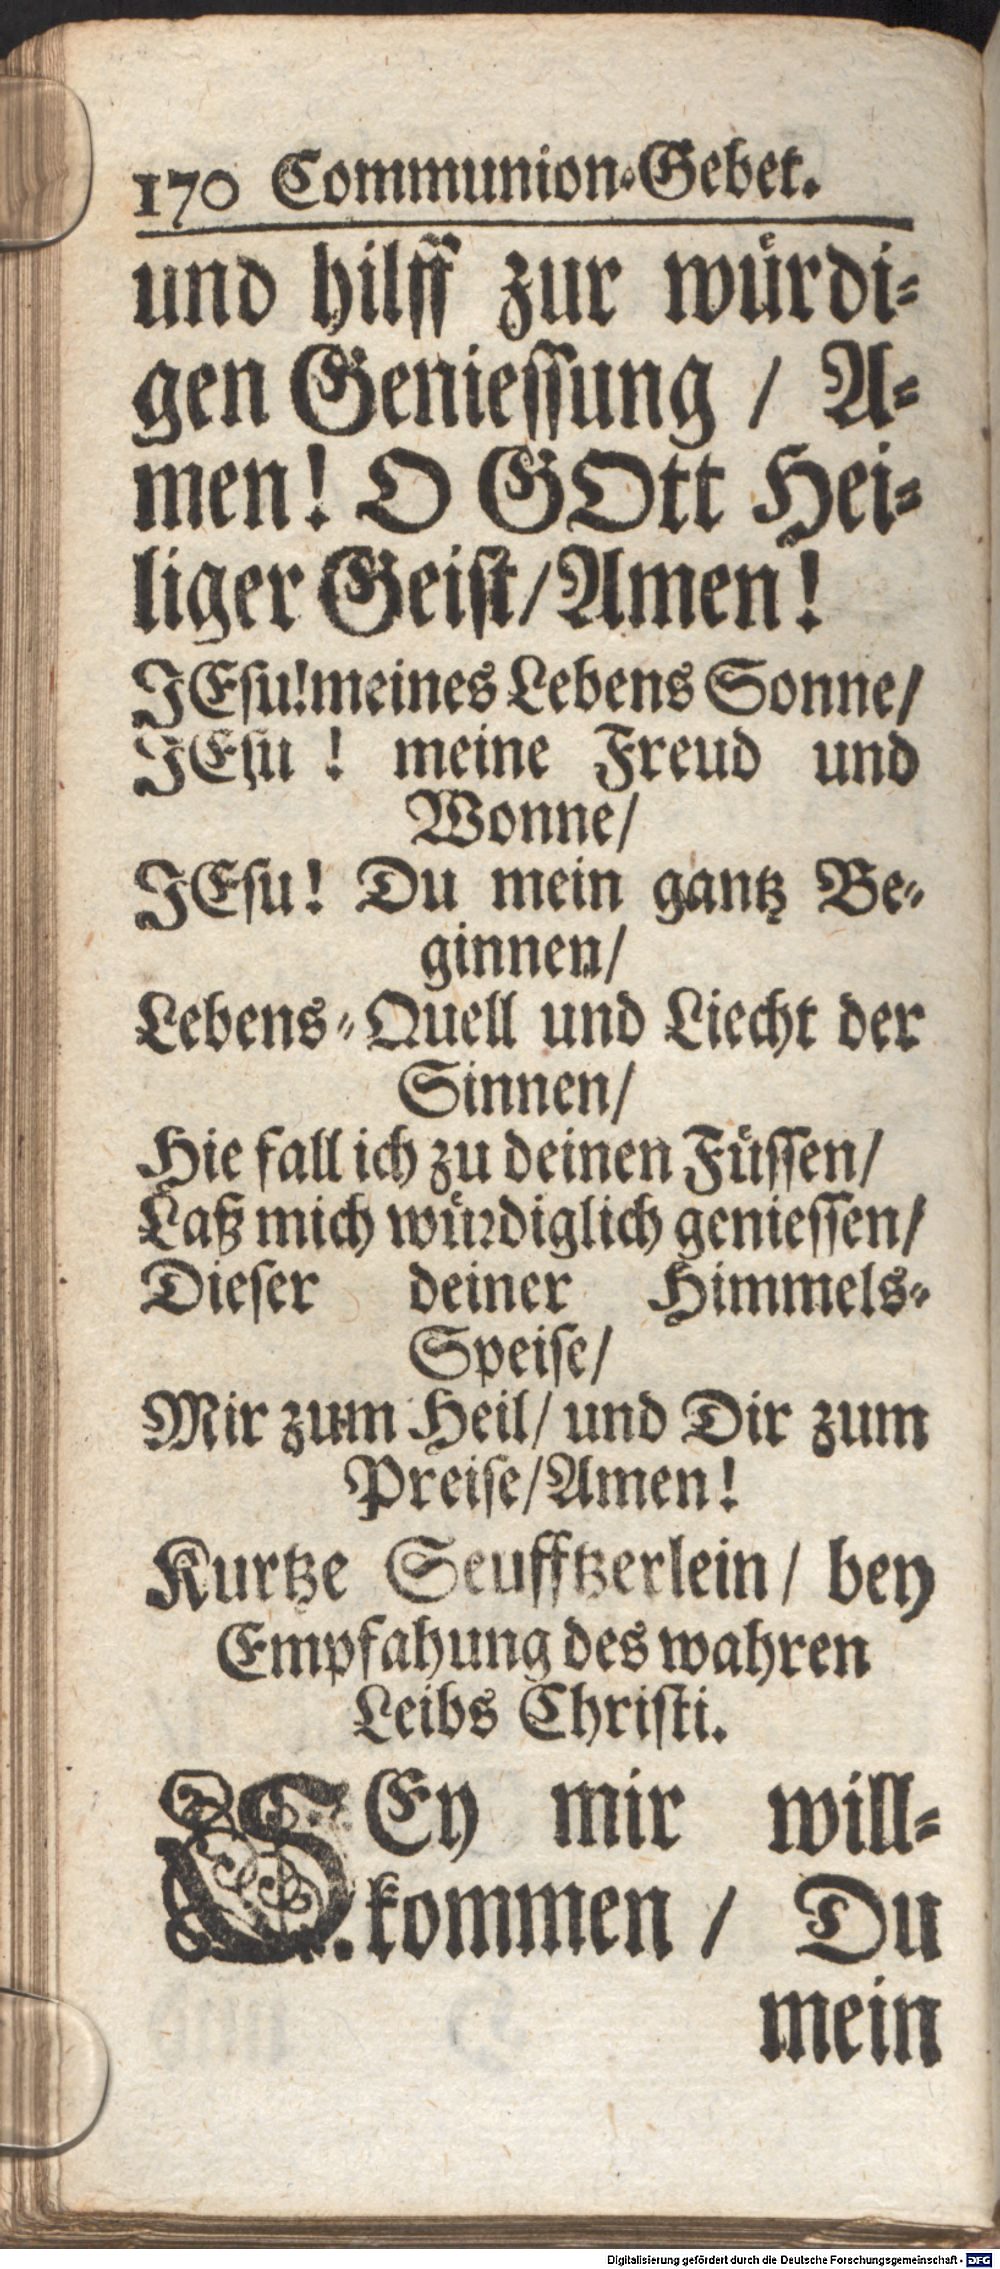 170 Communion-Gebet.
und hilff zur würdi-
gen Geniessung / A-
men! O GOtt Hei-
liger Geist/Amen!
JEsu! meines Lebens Sonne/
JEsu ! meine Freud und
Wonne/
JEsu! Du mein gantz Be-
ginnen/
Lebens-Quell und Liecht der
Sinnen/
Hie fall ich zu deinen Füssen/
Laß mich würdiglich geniessen/
Dieser deiner Himmels-
Speise/
Mir zum Heil/ und Dir zum
Preise/Amen!
Kurtze Seufftzerlein/ bey
Empfahung des wahren
Leibs Christi.
SEy mir will-
kommen / Du
mein
Digitalisierung gefördert durch die Deutsche Forschungsgemeinschaft - DFG